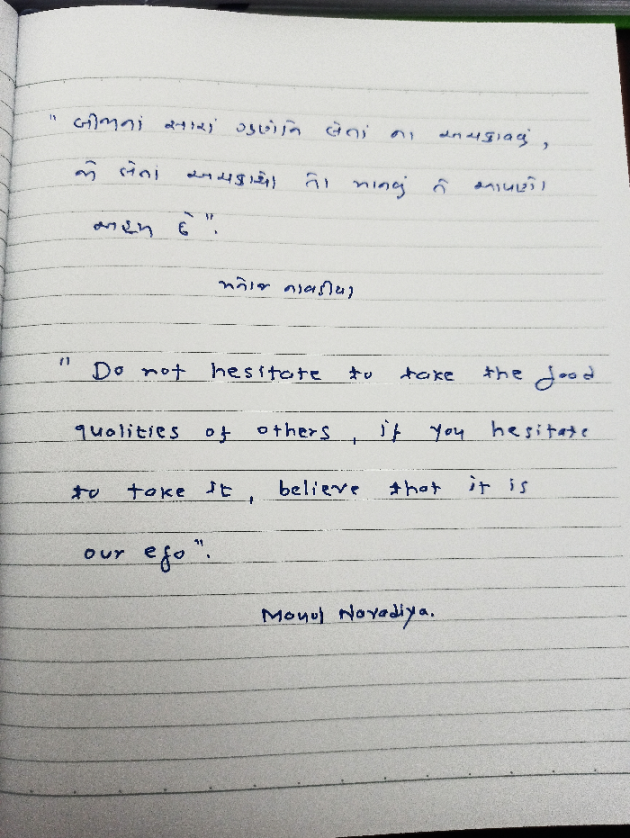 " બીજાનાં સારાં ગુણોને લેતાં ના અચકાવવું,
જો લેતાં અચકાયો તો માનવું કે આપણો
અહમ છે".
મનોજ નાવડીયા
" Do not hesitate to take the good
qualities of others, if you hesitate
to take it, believe that it is
our ego".
Manoj Navadiya.